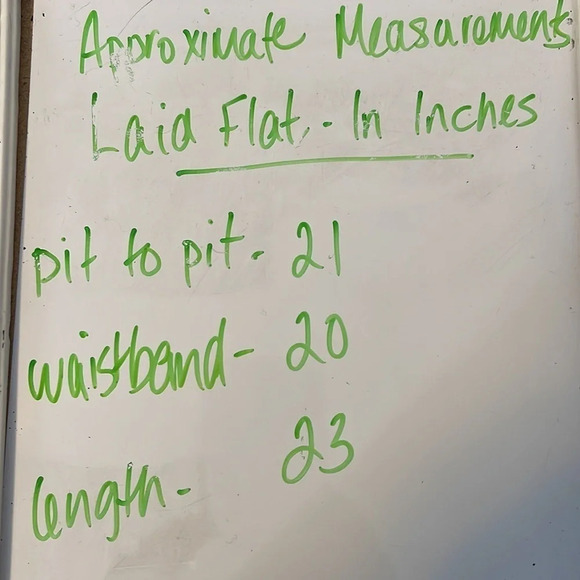 Approximate Measurements
Laid Flat - In Inches
pit to pit - 21
waistband - 20
length - 23